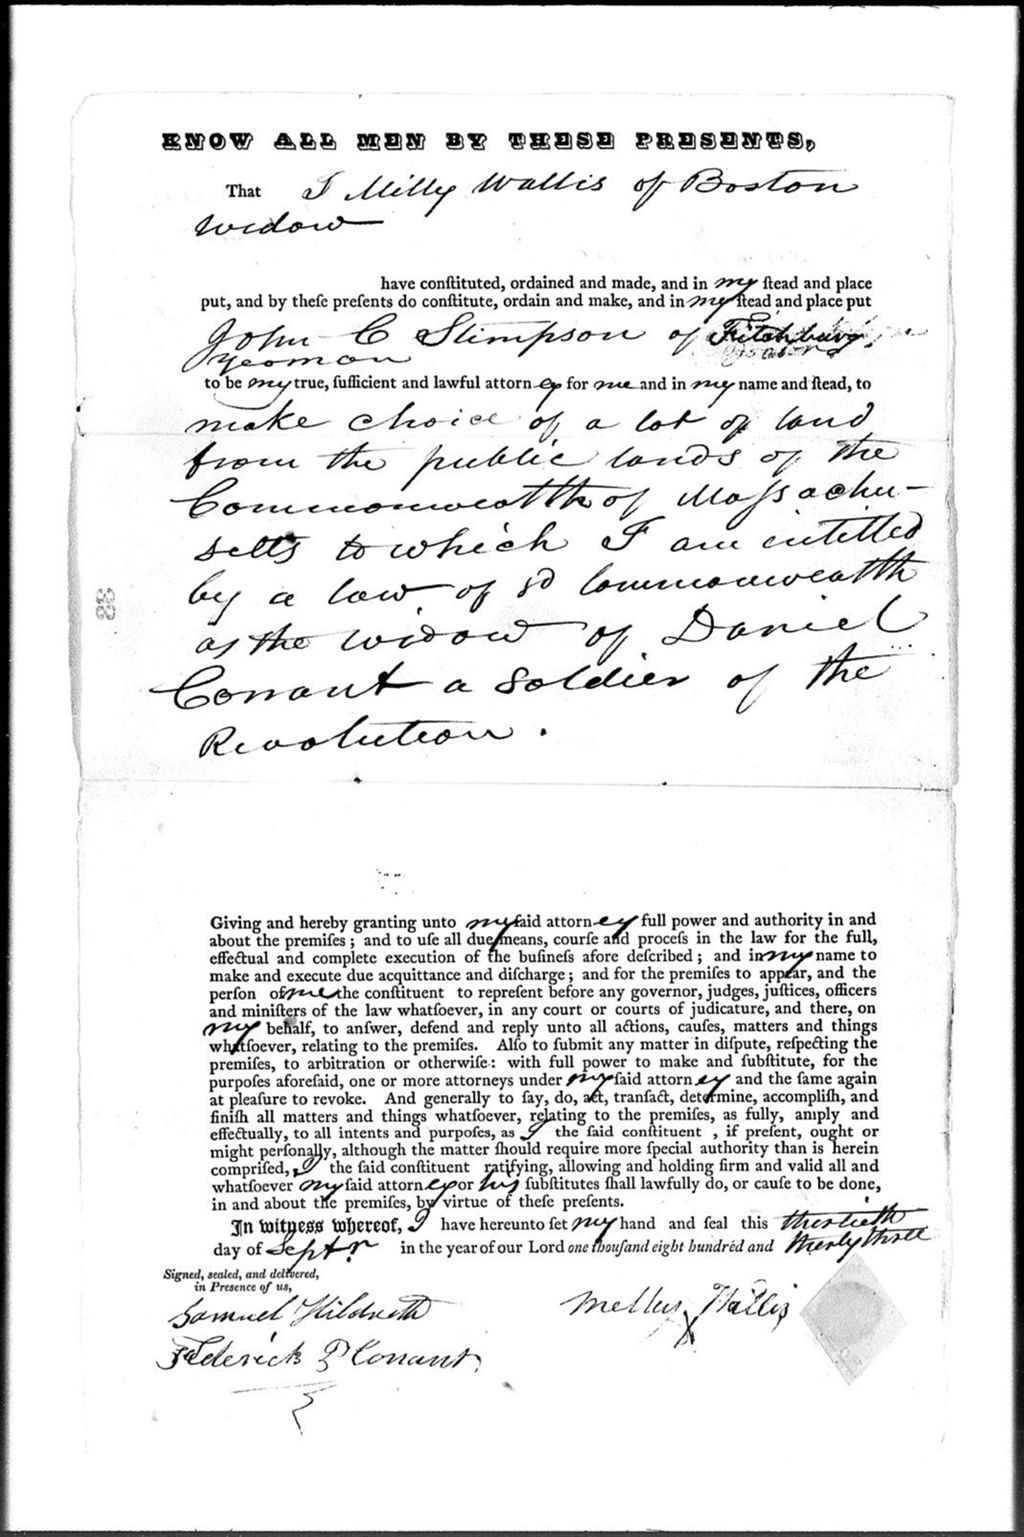 KNOW ALL MEN BY THESE PRESENTS,
That I Milly Wallis of Boston
Widow
have conſtituted, ordained and made, and in my ſtead and place
put, and by theſe preſents do conſtitute, ordain and make, and in my ſtead and place put
John C Stimpson of Fitchburg,
Yeoman
to be my true, ſufficient and lawful attorney for me and in my name and ſtead, to
make choice of a lot of land
from the public lands of the
Commonwealth of Maſsachu-
setts to which I am intitled
by a law of sd Commonwealth
as the widow of Daniel
Conant a soldier of the
Revolution.
88
Giving and hereby granting unto my ſaid attorney full power and authority in and
about the premiſes; and to uſe all due means, courſe and proceſs in the law for the full,
effectual and complete execution of the buſineſs afore deſcribed; and in my name to
make and execute due acquittance and diſcharge; and for the premiſes to appear, and the
perſon of me the conſtituent to repreſent before any governor, judges, juſtices, officers
and miniſters of the law whatſoever, in any court or courts of judicature, and there, on
my behalf, to anſwer, defend and reply unto all actions, cauſes, matters and things
whatſoever, relating to the premiſes. Alſo to ſubmit any matter in diſpute, reſpecting the
premiſes, to arbitration or otherwiſe: with full power to make and ſubſtitute, for the
purpoſes aforeſaid, one or more attorneys under my ſaid attorney and the ſame again
at pleaſure to revoke. And generally to ſay, do, act, tranſact, determine, accompliſh, and
finiſh all matters and things whatſoever, relating to the premiſes, as fully, amply and
effectually, to all intents and purpoſes, as I the ſaid conſtituent , if preſent, ought or
might perſonally, although the matter ſhould require more ſpecial authority than is herein
compriſed, I the ſaid conſtituent ratifying, allowing and holding firm and valid all and
whatſoever my ſaid attorney or his ſubſtitutes ſhall lawfully do, or cauſe to be done,
in and about the premiſes, by virtue of theſe preſents.
In witneſs whereof, I have hereunto ſet my hand and ſeal this thirtieth
day of Septr in the year of our Lord one thouſand eight hundred and thirty three
Signed, sealed, and delivered,
in Presence of us,
Samuel Hildreth
Federick P Conant
Mellus Wallis
X